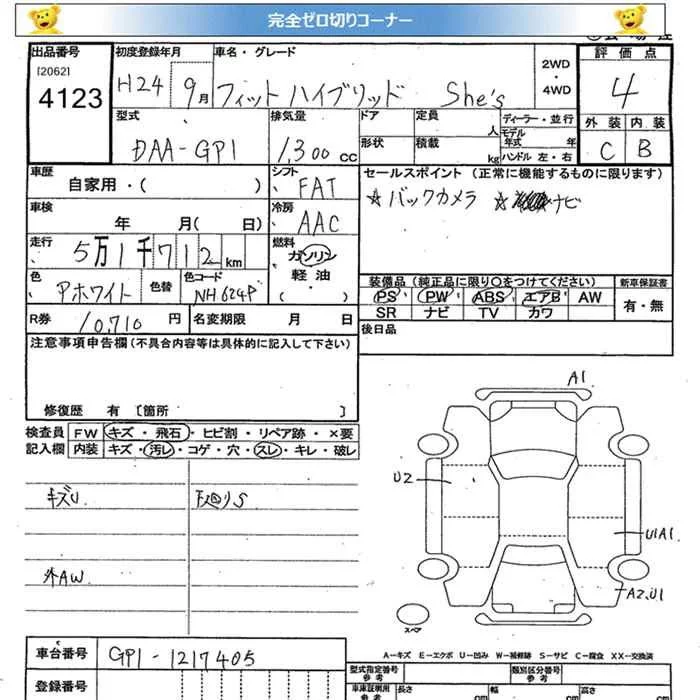 完全ゼロ切りコーナー
出品番号 初度登録年月 車名・グレード 評価点
[2062] 4123
H24 9月 フィット ハイブリッド She's 2WD・4WD 4
型式 排気量 ドア 定員 人 ディーラー・並行 外装 内装
DAA-GP1 1,300 cc 形状 積載 kg モデル年式 年 ハンドル 左・右 C B
車歴 自家用・( ) シフト FAT セールスポイント (正常に機能するものに限ります)
☆バックカメラ ☆ ナビ
車検 年 月(日) 冷房 AAC
走行 5万1千712km 燃料 ガソリン 軽油 ・( )
装備品 (純正品に限り〇をつけてください) 新車保証書
PS PW ABS エアB AW 有・無
SR ナビ TV カワ
色 Pホワイト 色替 色コード NH624P
R券 10,710円 名変期限 月 日 後日品
注意事項申告欄 (不具合内容等は具体的に記入して下さい)
修復歴 有 [箇所 ]
検査員 FW キズ・飛石・ヒビ割・リペア跡・×要
記入欄 内装 キズ・汚レ・コゲ・穴・スレ・キレ・破レ
キズU 下廻りS
外AW
A1
U2
U1A1
A2,U1
スペア
A-キズ E-エクボ U-凹み W-補修跡 S-サビ C-腐食 XX-交換済
車台番号 GP1-1217405
型式指定番号 参考 類別区分番号 参考
登録番号
車庫証明用 参考 長さ cm 幅 cm 高さ cm